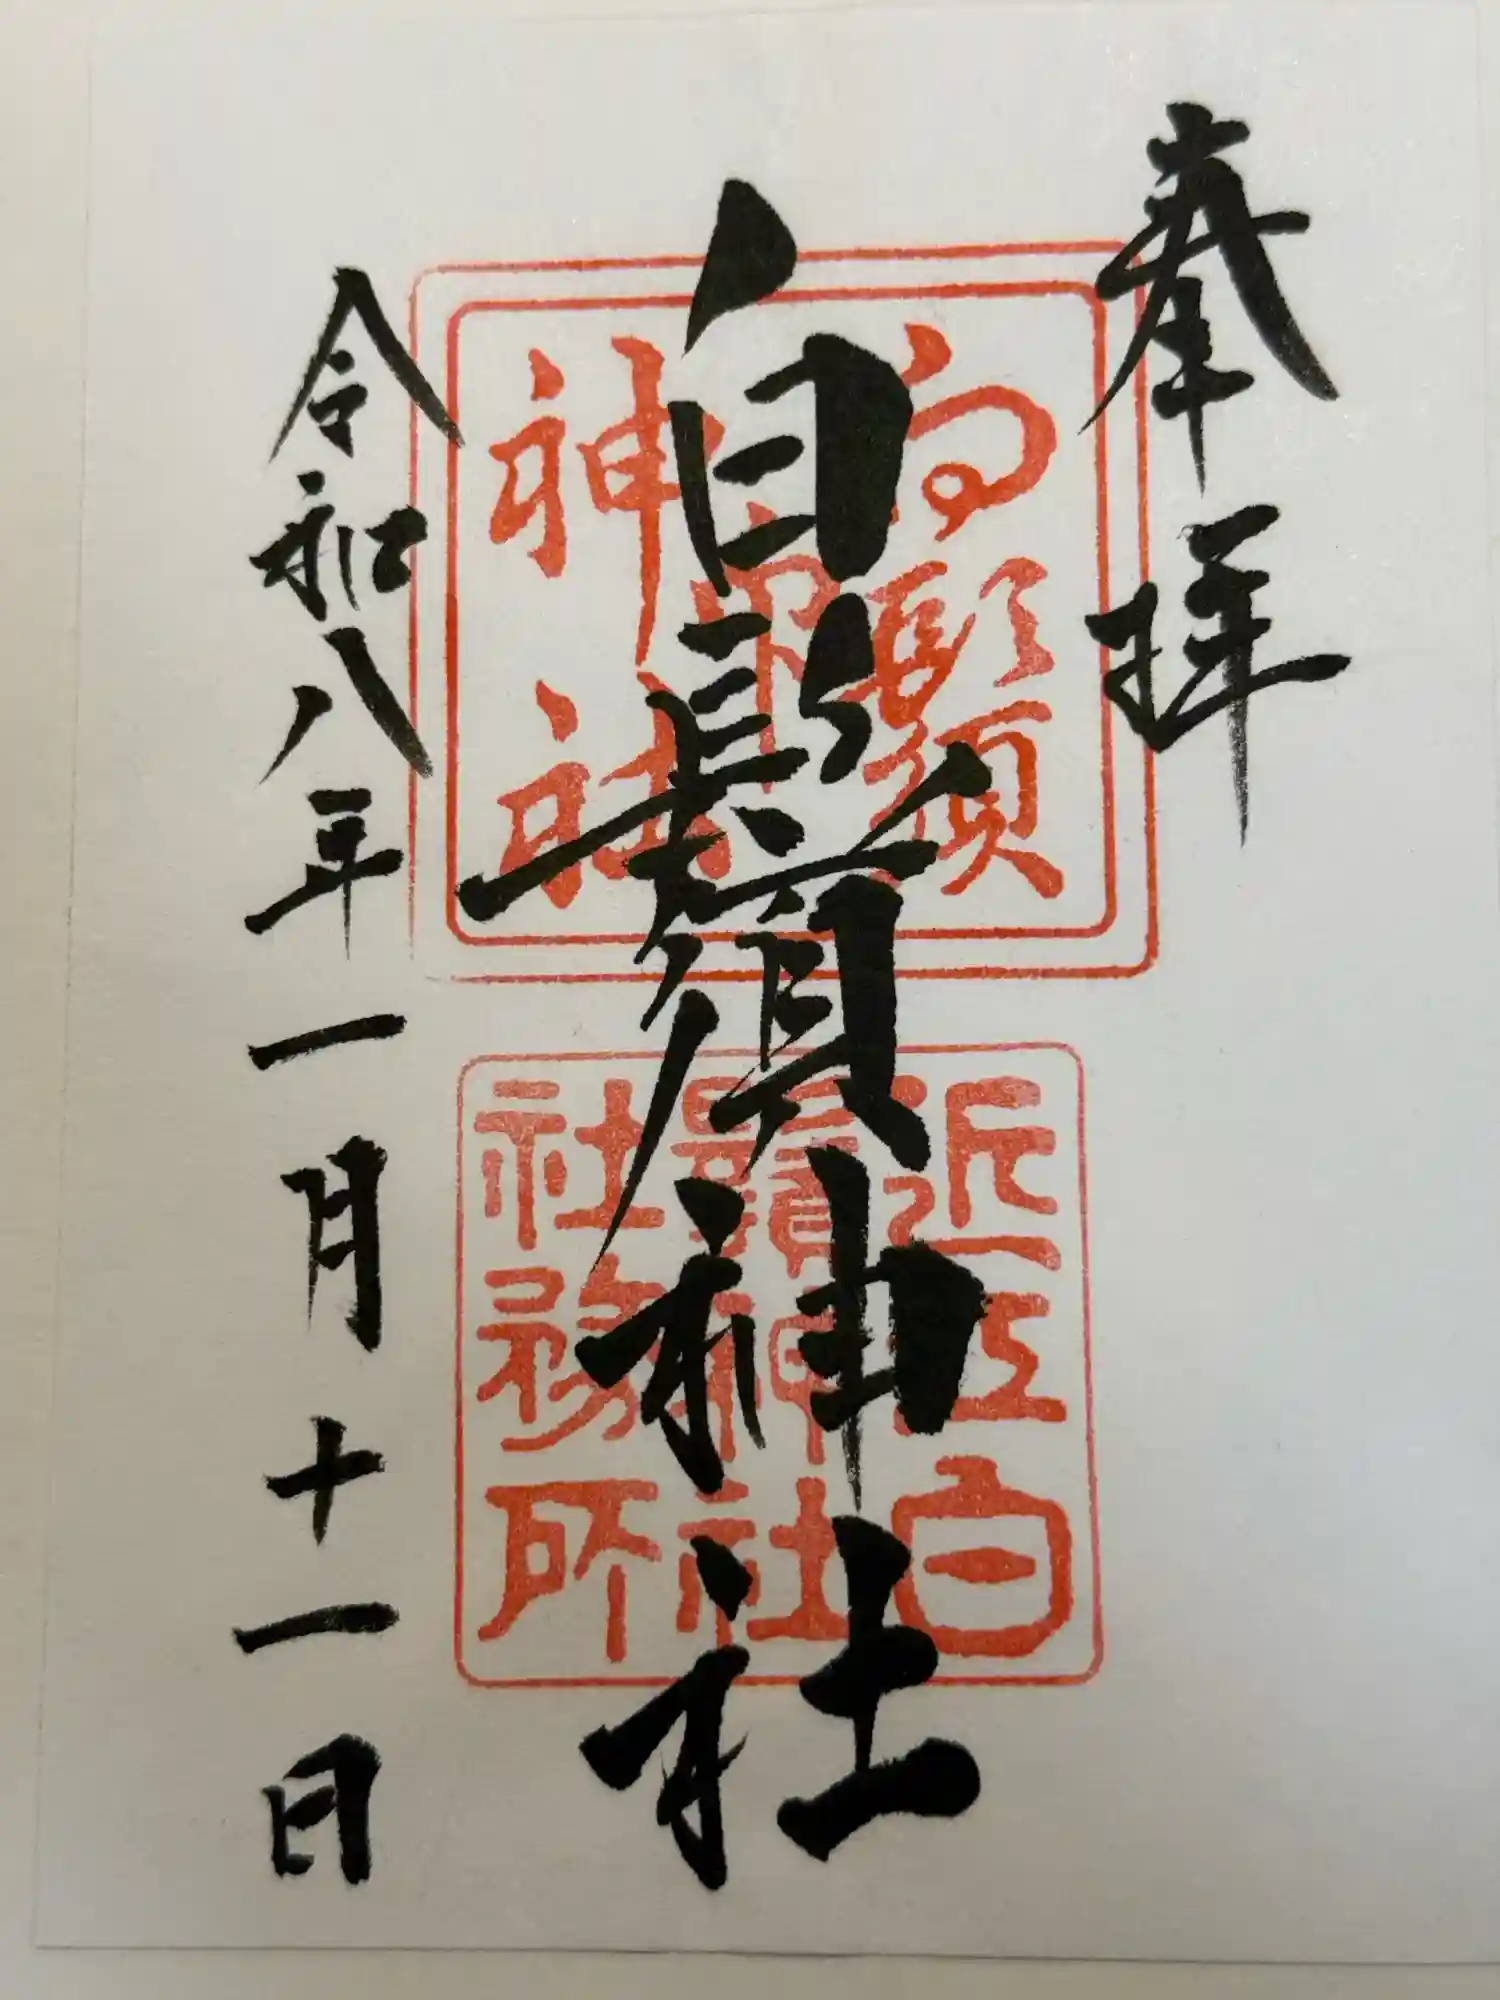 奉拝
白鬚神社
令和八年一月十一日
近江白
鬚神社
社務所